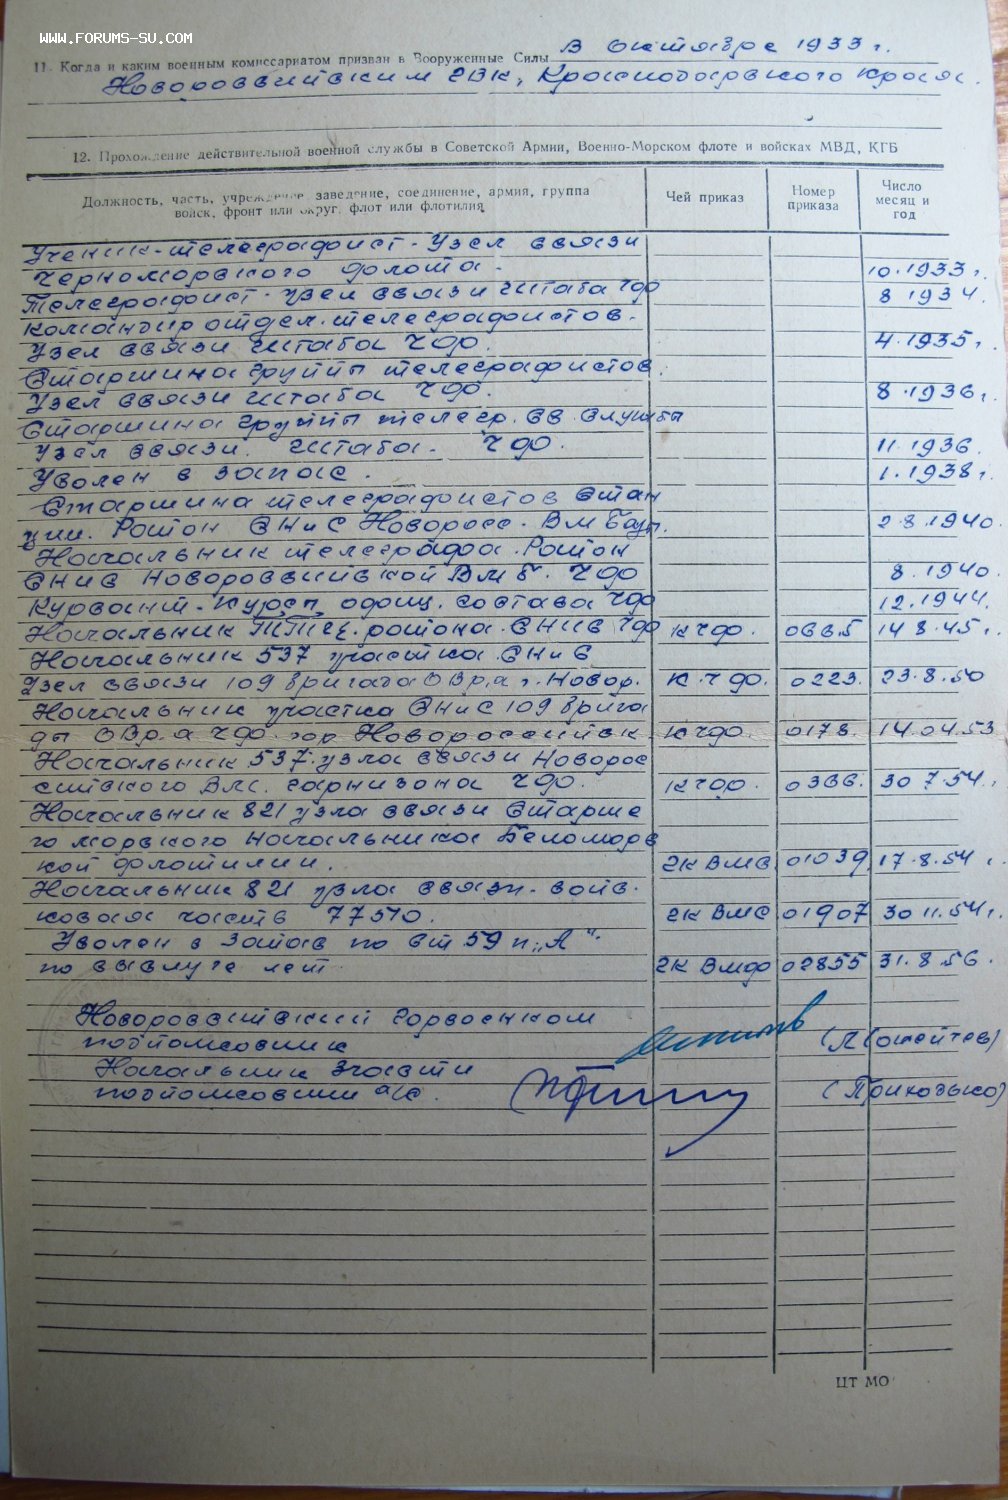 WWW.FORUMS-SU.COM
11. Когда и каким военным комиссариатом призван в Вооруженные Силы В октябре 1933 г.
Новороссийским ГВК, Краснодарского края.
12. Прохождение действительной военной службы в Советской Армии, Военно-Морском флоте и войсках МВД, КГБ
Должность, часть, учреждение, заведение, соединение, армия, группа войск, фронт или округ, флот или флотилия
Чей приказ
Номер приказа
Число месяц и год
Ученик-телеграфист. Узел связи
Черноморского флота. 10.1933 г.
Телеграфист. Узел связи штаба ЧФ 8 1934.
Командир отдел. телеграфистов.
Узел связи штаба ЧФ. 4.1935 г.
Старшина группы телеграфистов.
Узел связи штаба ЧФ. 8.1936 г.
Старшина группы телегр. св. службы
Узел связи. Штаба. ЧФ. 11.1936.
Уволен в запас. 1.1938 г.
Старшина телеграфистов стан
ции. Район СНиС Новоросс. ВмБазы. 2.8.1940.
Начальник телеграфа. Район
СНиС Новороссийской Вмб. ЧФ 8.1940.
Курсант. Курсы офиц. состава ЧФ 12.1944.
Начальник района СНиС ЧФ КЧФ. 0665 14 8.45 г.
Начальник 537 участка СНиС
Узел связи 109 бригада ОВРа г. Новор. К.ЧФ. 0223. 23.8.50
Начальник участка СНиС 109 брига
ды ОВРа ЧФ. гор Новороссийск КЧФ. 0178. 14.04.53
Начальник 537 узла связи Новорос
сийского гарнизона ЧФ. КЧФ. 0366. 30 7.54.
Начальник 821 узла связи Старше
го морского начальника Беломорс
кой флотилии. ГК ВМС 01039 17.8.54 г.
Начальник 821 узла связи. войс.
ковая часть 77510. ГК ВМС 01907 30 11.54 г.
Уволен в запас по ст 59 п. „А“.
по выслуге лет ГК ВМФ 02855 31.8.56.
Новороссийский горвоенком
подполковник
Начальник части
подполковник а/с. (Приходько)
ЦТ МО